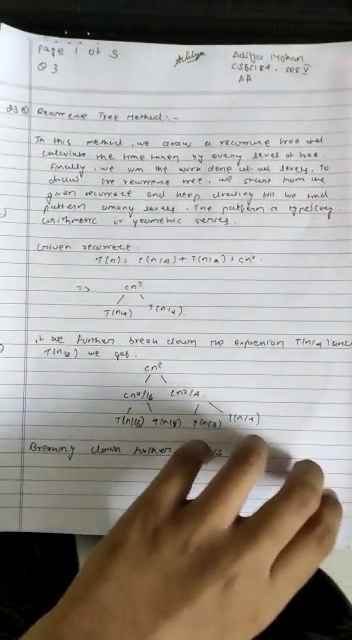 Page 1 of 5
Aditya Mohan
Q3
CSE
AA
Recurrence Tree Method:-
In this method, we draw a recurrence tree and
calculate the time taken by every level of tree.
Finally, we sum the work done at all levels. To
draw the recurrence tree, we start from the
given recurrence and keep drawing till we find
pattern among levels. The pattern is typically
arithmetic or geometric series.
Given recurrence:
T(n) = T(n/4) + T(n/2) + cn²
=> cn²
T(n/4) T(n/2)
If we further break down the expression T(n/4) and
T(n/2) we get
cn²
cn²/16 cn²/4
T(n/16) T(n/8) T(n/8) T(n/4)
Breaking down further